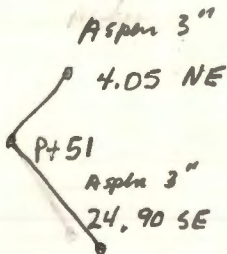 Aspen 3"
4.05 NE
Pt 51
Aspen 3"
24.90 SE